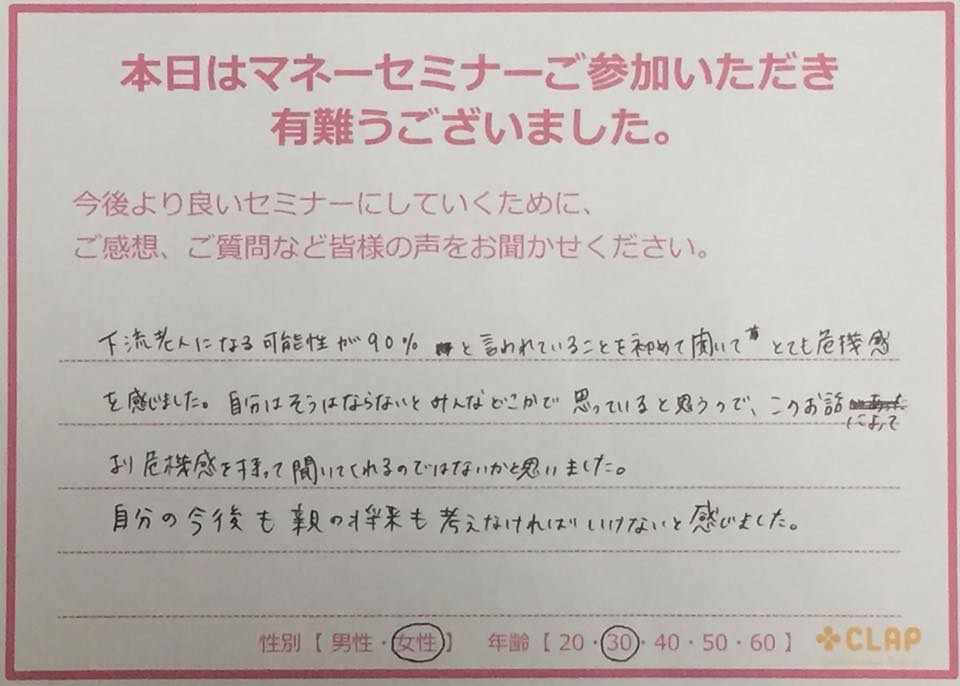 本日はマネーセミナーご参加いただき
有難うございました。
今後より良いセミナーにしていくために、
ご感想、ご質問など皆様の声をお聞かせください。
下流老人になる可能性が90% と言われていることを初めて聞いて とても危機感
を感じました。自分はそうはならないとみんなどこかで思っていると思うので、このお話
によって
より危機感を持って聞いてくれるのではないかと思いました。
自分の今後も親の将来も考えなければいけないと感じました。
性別【 男性・女性 】 年齢【 20・30・40・50・60 】
CLAP